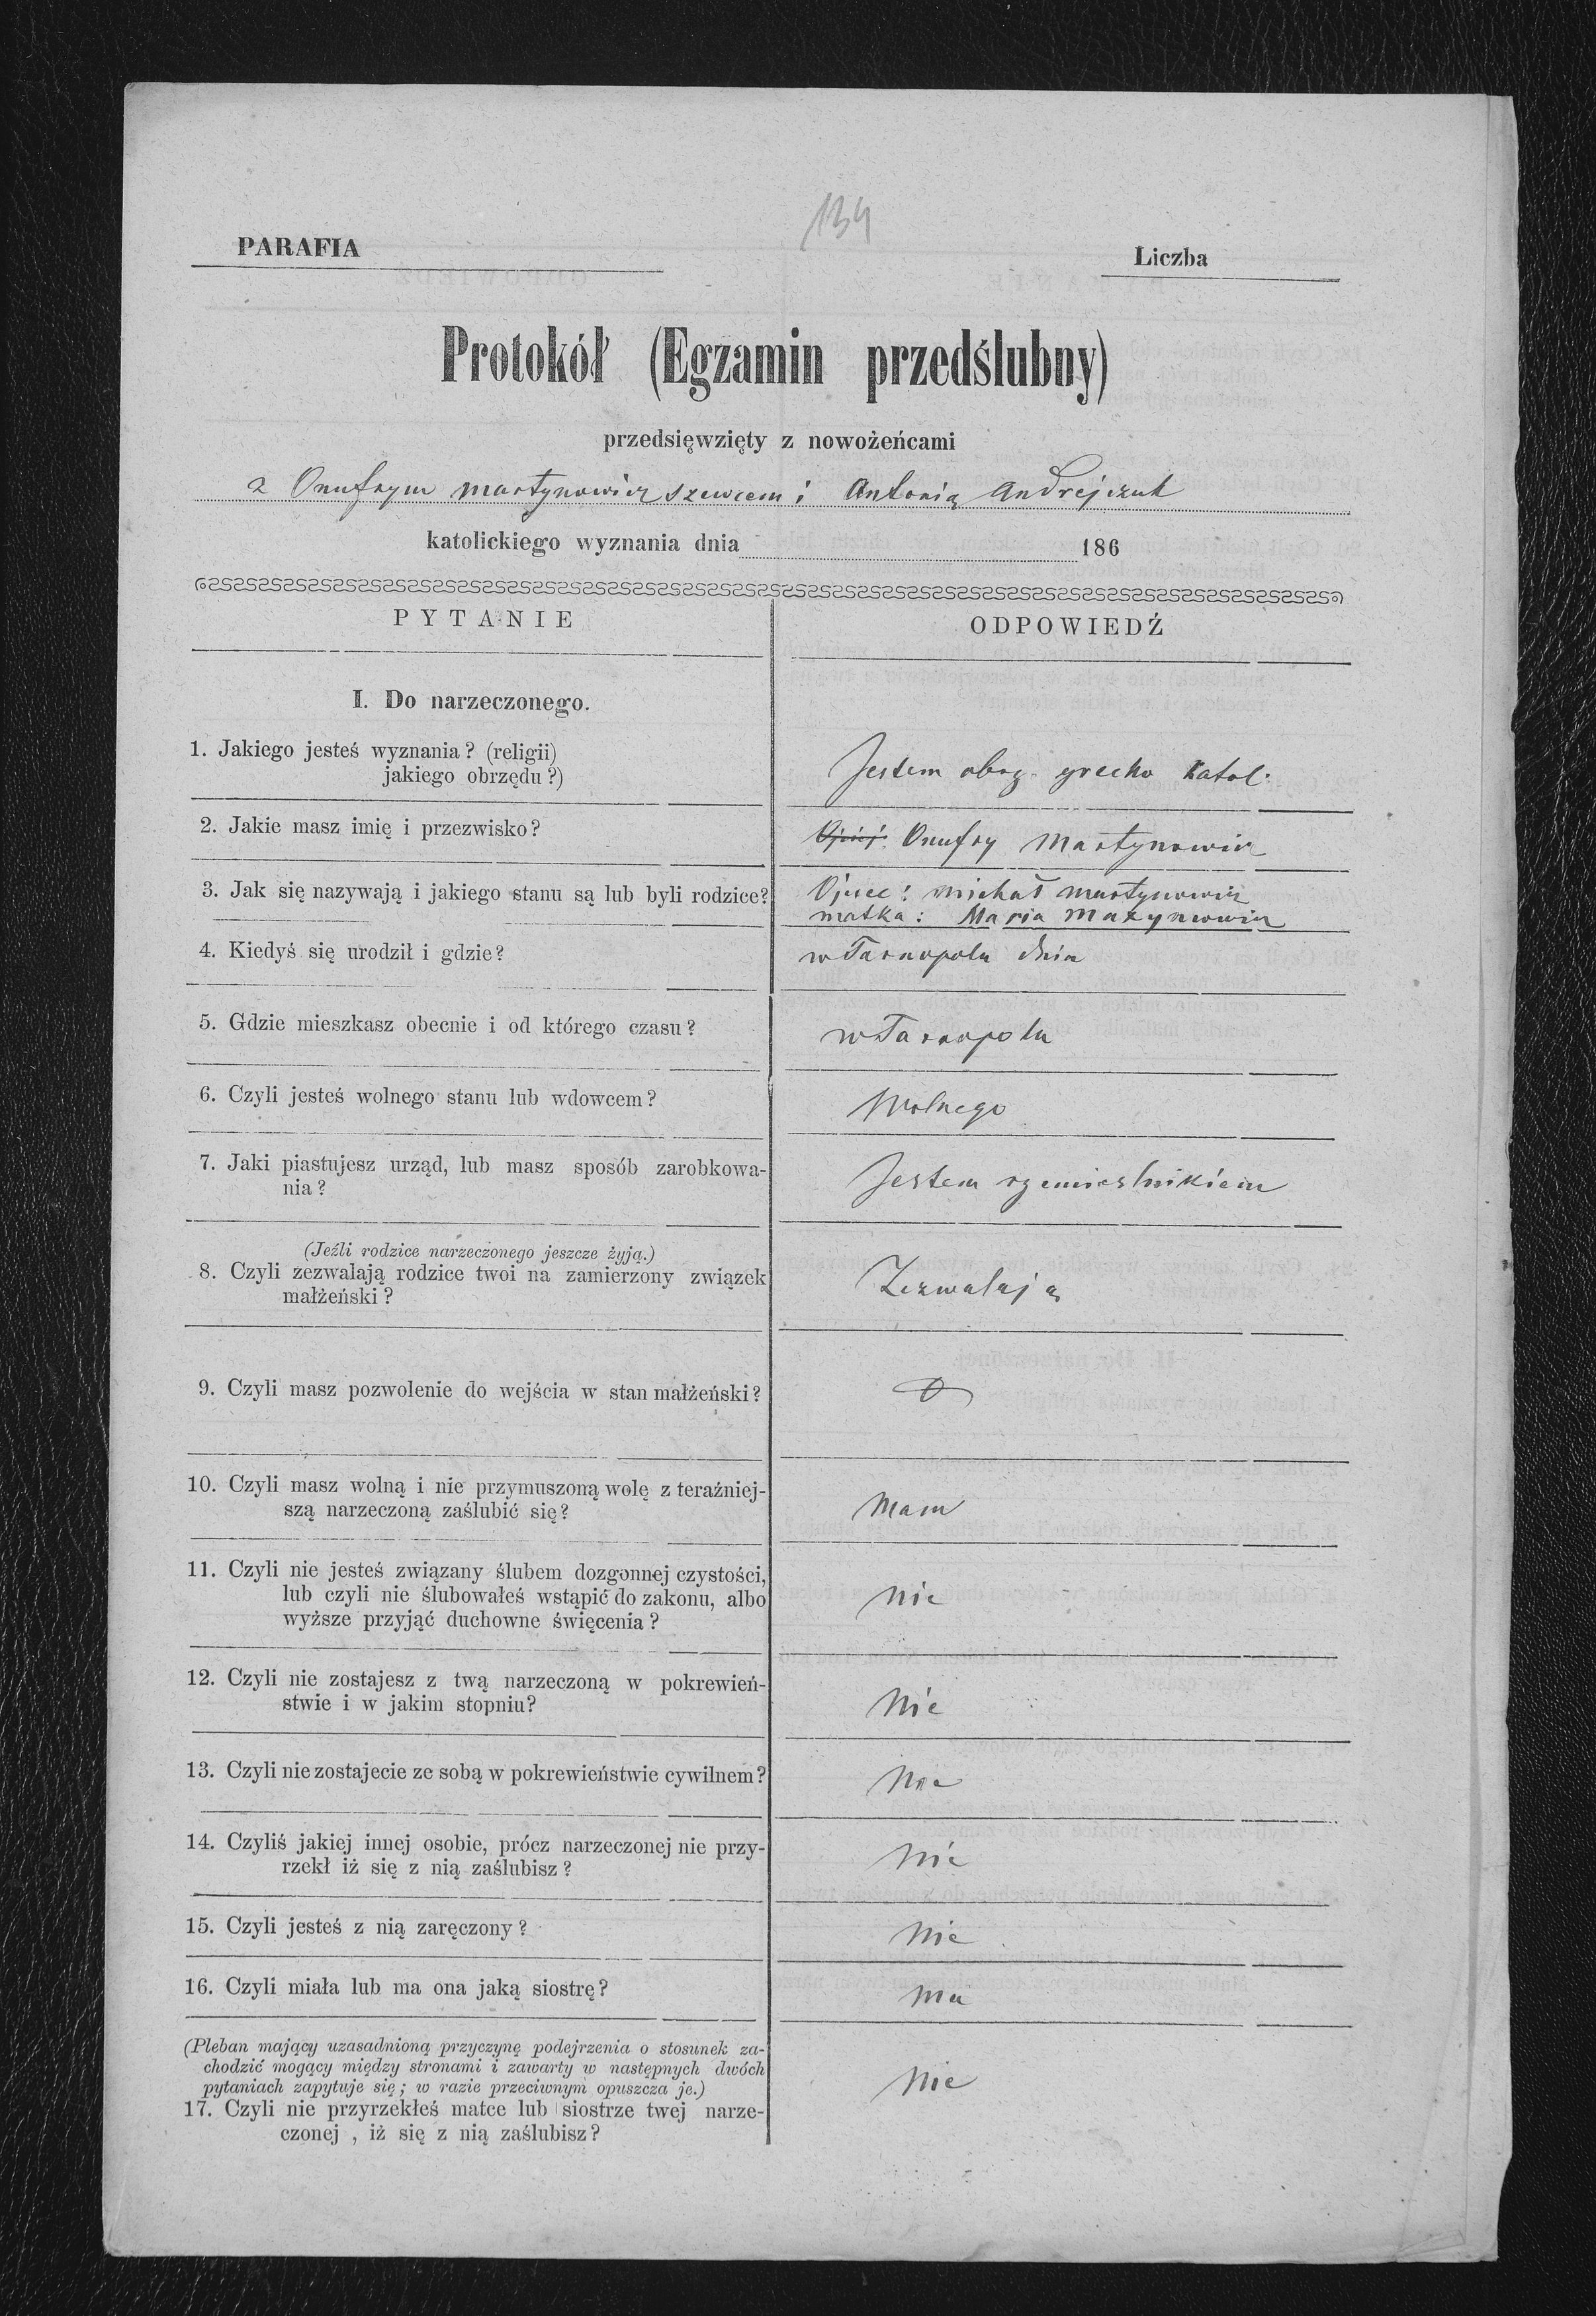 134
PARAFIA
Liczba
Protokół (Egzamin przedślubny)
przedsięwzięty z nowożeńcami
z Onufrym Martynowicz szewcem i Antonią Andrejczuk
katolickiego wyznania dnia 186
PYTANIE
ODPOWIEDŹ
I. Do narzeczonego.
1. Jakiego jesteś wyznania? (religii)
jakiego obrzędu?)
Jestem obrz. grecko katol.
2. Jakie masz imię i przezwisko?
Onufry Martynowicz
3. Jak się nazywają i jakiego stanu są lub byli rodzice?
Ojciec: Michał Martynowicz
matka: Maria
4. Kiedyś się urodził i gdzie?
w Tarnopolu dnia
5. Gdzie mieszkasz obecnie i od którego czasu?
w Tarnopolu
6. Czyli jesteś wolnego stanu lub wdowcem?
Wolnego
7. Jaki piastujesz urząd, lub masz sposób zarobkowa-
nia?
Jestem rzemieslnikiem
(Jeźli rodzice narzeczonego jeszcze żyją.)
8. Czyli zezwalają rodzice twoi na zamierzony związek
małżeński?
Zezwalają
9. Czyli masz pozwolenie do wejścia w stan małżeński?
10. Czyli masz wolną i nie przymuszoną wolę z teraźniej-
szą narzeczoną zaślubić się?
Mam
11. Czyli nie jesteś związany ślubem dozgonnej czystości,
lub czyli nie ślubowałeś wstąpić do zakonu, albo
wyższe przyjąć duchowne święcenia?
Nie
12. Czyli nie zostajesz z twą narzeczoną w pokrewień-
stwie i w jakim stopniu?
Nie
13. Czyli nie zostajecie ze sobą w pokrewieństwie cywilnem?
Nie
14. Czyliś jakiej innej osobie, prócz narzeczonej nie przy-
rzekł iż się z nią zaślubisz?
Nie
15. Czyli jesteś z nią zaręczony?
Nie
16. Czyli miała lub ma ona jaką siostrę?
Ma
(Pleban mający uzasadnioną przyczynę podejrzenia o stosunek za-
chodzić mogący między stronami i zawarty w następnych dwóch
pytaniach zapytuje się; w razie przeciwnym opuszcza je.)
17. Czyli nie przyrzekłeś matce lub siostrze twej narze-
czonej , iż się z nią zaślubisz?
Nie